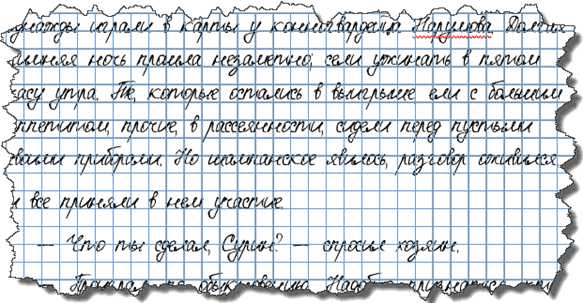 днажды играли в карты у конногвардейца Нарумова. Долгая
зимняя ночь прошла незаметно; сели ужинать в пятом
часу утра. Те, которые остались в выигрыше ели с большим
аппетитом, прочие, в рассеянности, сидели перед пустыми
своими приборами. Но шампанское явилось, разговор оживился
и все приняли в нем участие.
— Что ты сделал, Сурин? — спросил хозяин.